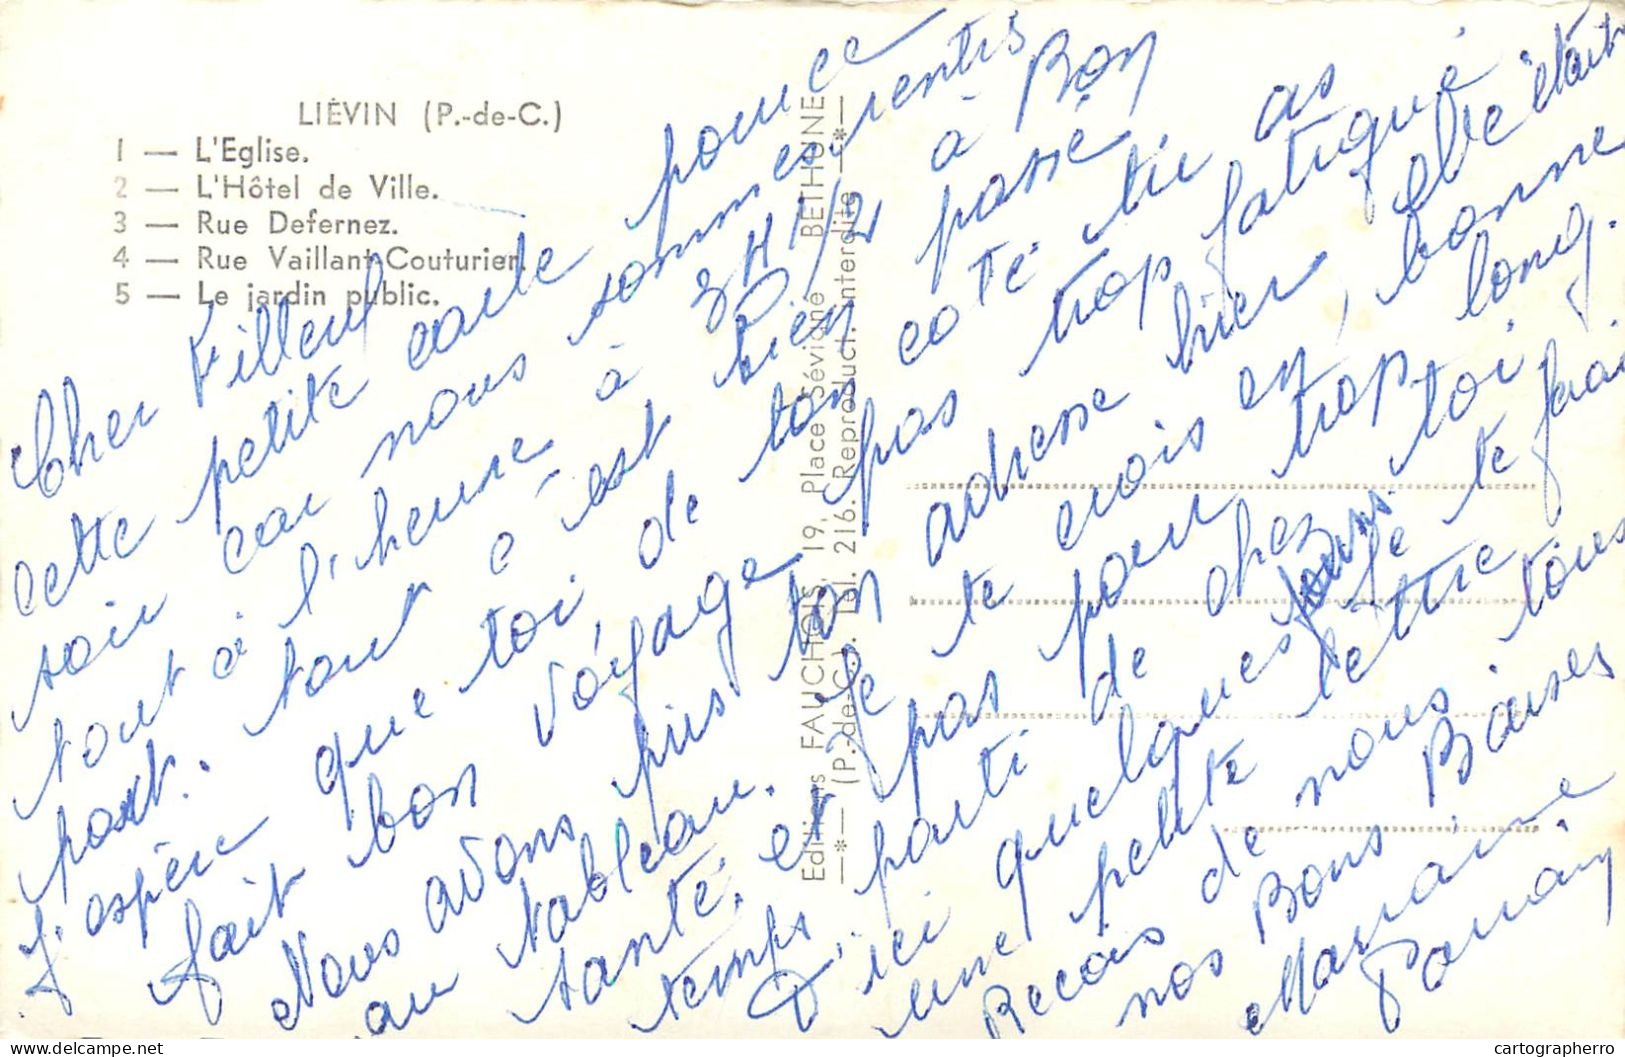 LIÉVIN (P.-de-C.)
1 — L'Eglise.
2 — L'Hôtel de Ville.
3 — Rue Defernez.
4 — Rue Vaillant-Couturier.
5 — Le jardin public.
Editions FAUCHOIS, 19, Place Sévigné BETHUNE
—*— (P.-de-C.). Tél. 216. Reproduct. interdite —*—
Cher Filleul
cette petite carte pour ce
soir car nous sommes rentrés
tout à l'heure à 3H 1/2 à Bon
port. tout c'est bien passé
J'espère que toi de ton coté tu as
fait bon voyage pas trop fatigué
Nous avons pris ton adresse hier, elle était
au tableau. Je te crois en, bonne
santé, et pas pour trop long
temps parti de chez toi
D'ici quelques jours je te ferai
une petite lettre
Recois de nous tous
nos Bons Baisers
Marraine
Parrain
cartographerro